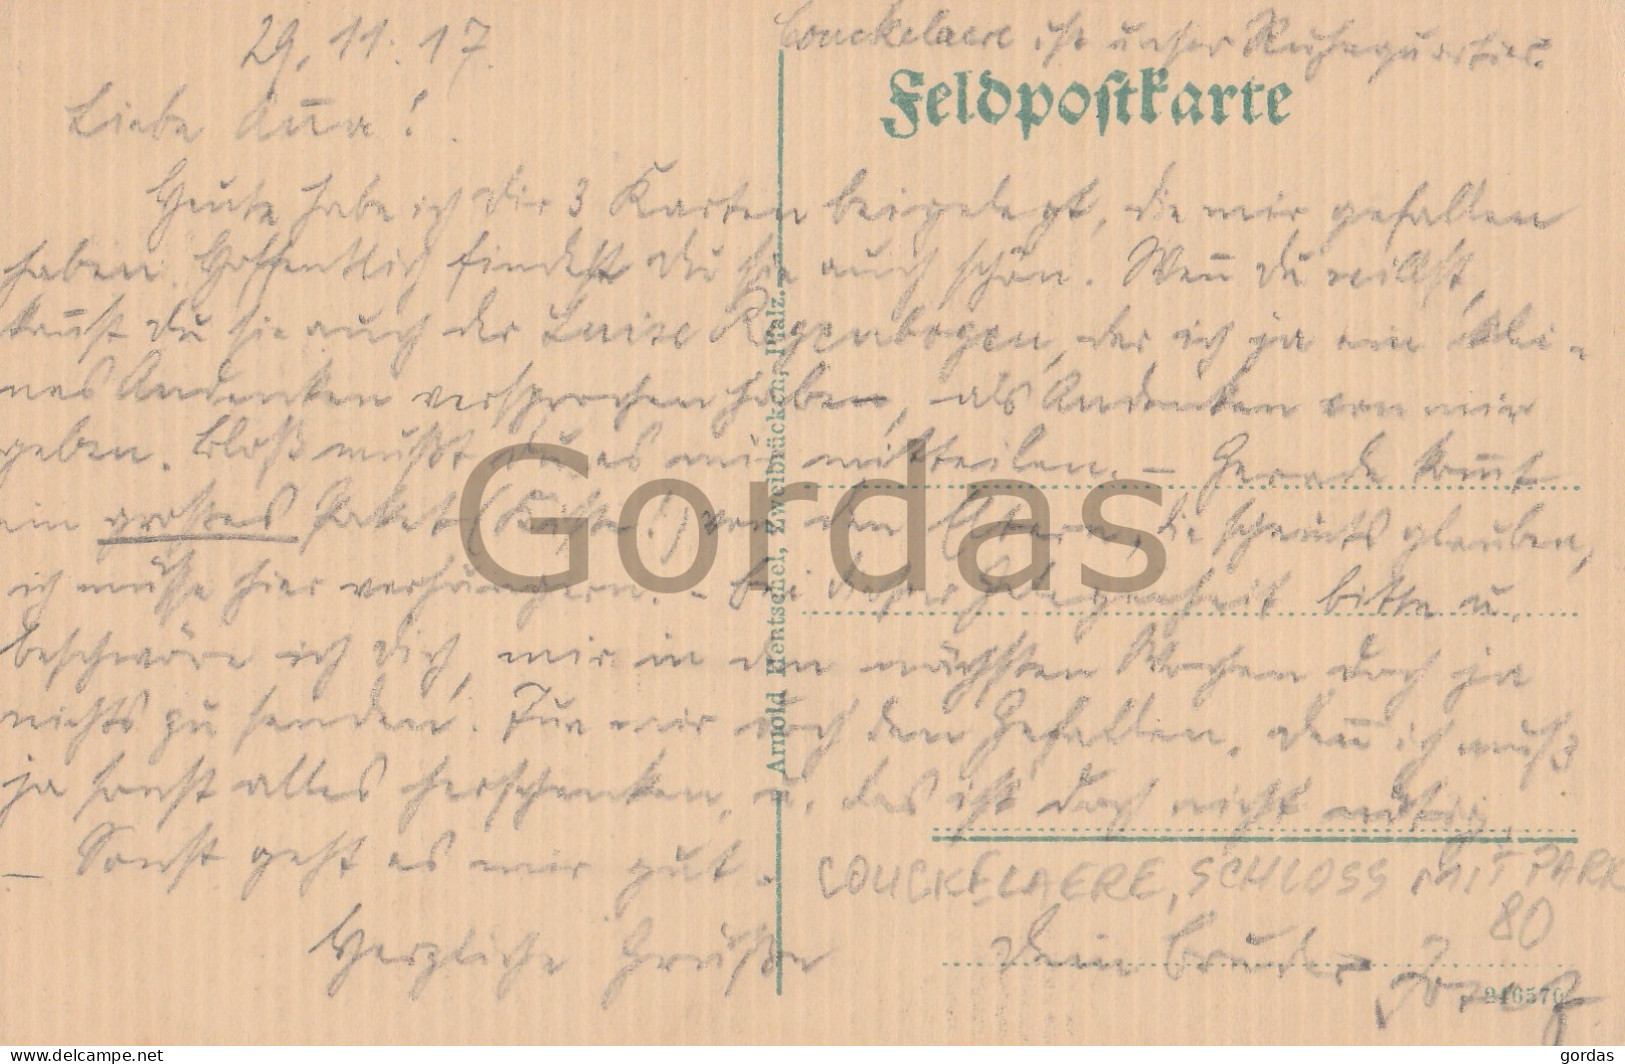 29.11.17.
Couckelaere ist unser Ruhequartier.
Feldpostkarte
Liebe Anna!
Heute habe ich Dir 3 Karten beigelegt, die mir gefallen
haben. Hoffentlich findest Du sie auch schön. Wenn Du willst,
kannst Du sie auch der Luise Regenbogen, der ich ja ein klei-
nes Andenken versprochen habe, als Andenken von mir
geben. Bloß mußt Du es mir mitteilen. – Gerade kommt
ein großes Paket (Kiste!) von den Eltern, die scheints glauben,
ich müsse hier verhungern. – Bei dieser Gelegenheit bitte u.
beschwöre ich Dich, mir in den nächsten Wochen doch ja
nichts zu senden. Tue mir doch den Gefallen, denn ich muß
ja sonst alles herschenken, u. das ist doch nicht nötig.
– Sonst geht es mir gut.
COUCKELAERE, SCHLOSS MIT PARK
80
Herzliche Grüße
Dein Bruder Josef
Arnold Hentschel, Zweibrücken, Pfalz.
Gordas
delcampe.net
gordas